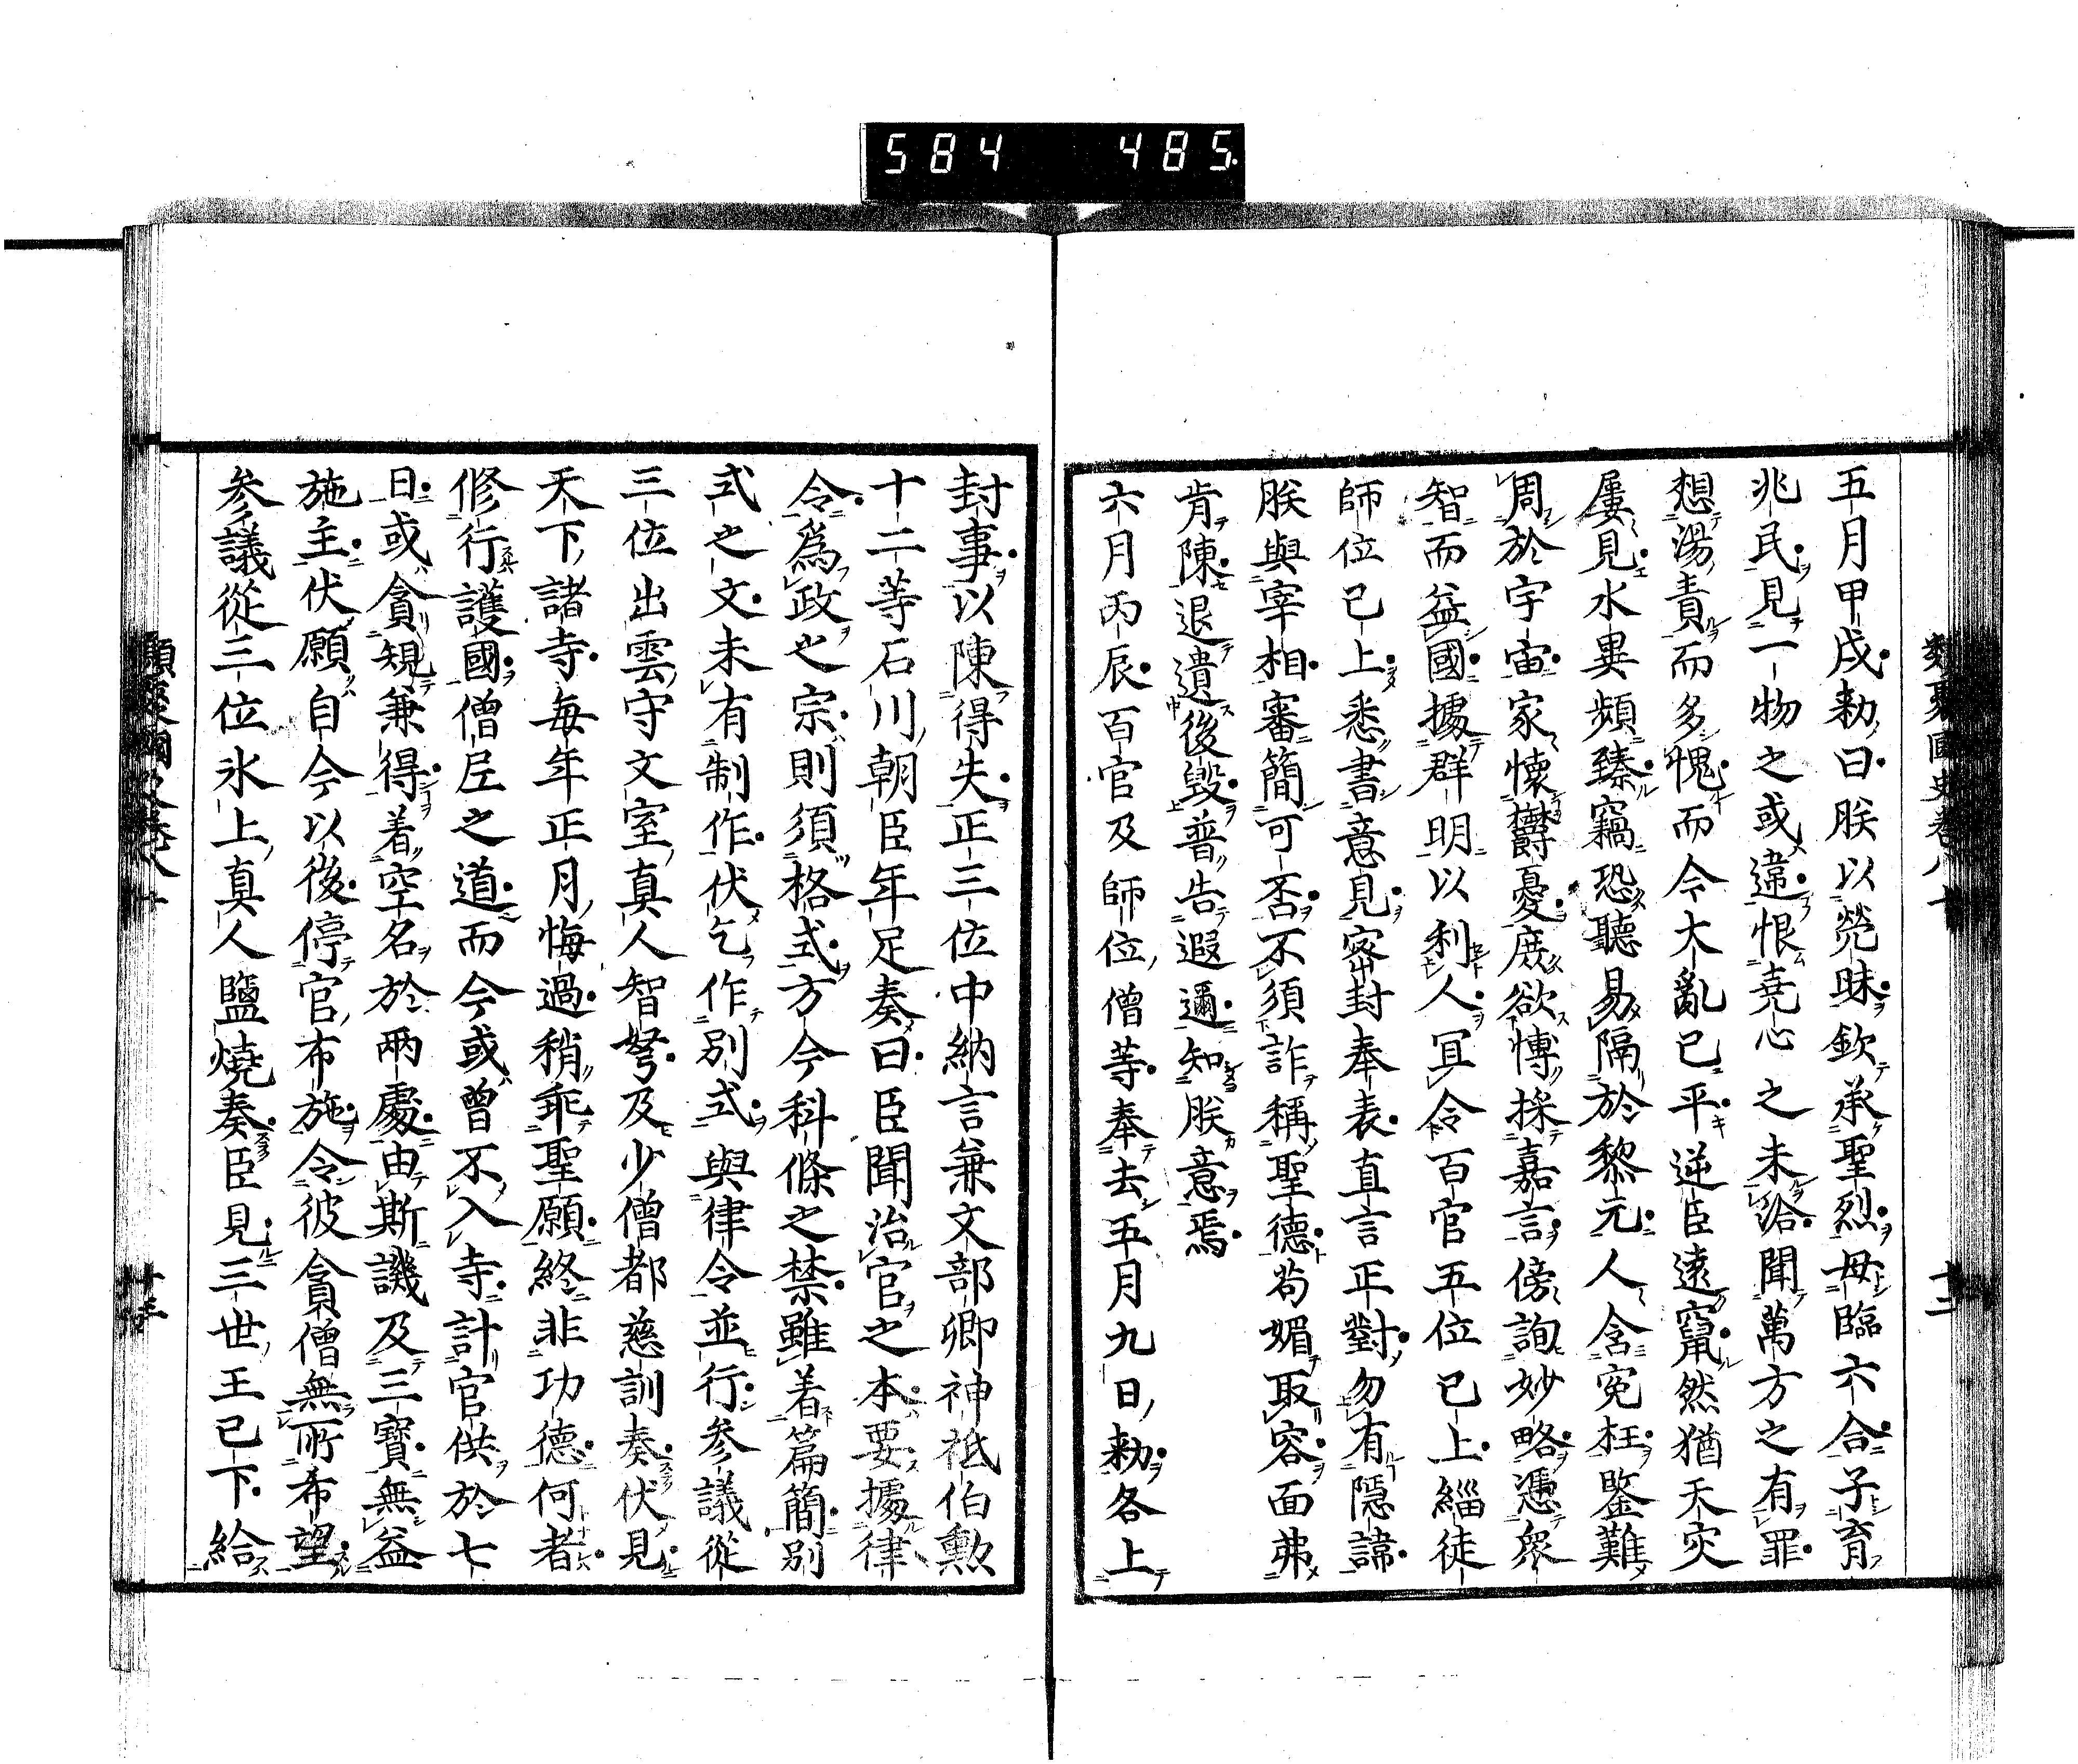 584 485
五月甲戌勅曰朕以煢昧欽承聖烈母臨六合子育
兆民見一物之或違恨堯心之未洽聞萬方之有罪
想湯責而多愧而今大亂已平逆臣遠竄然猶天灾
屢見水異頻臻竊恐聽易隔於黎元人含寃枉鑒難
周於宇宙家懷欝憂庶欲博採嘉言傍詢妙略憑衆
智而益國據群明以利人冝令百官五位已上緇徒
師位已上悉書意見密封奉表直言正對勿有隱諱
朕與宰相審簡可否不須詐稱聖德苟媚取容面弗
肯陳退遺後毀普告遐邇知朕意焉
六月丙辰百官及師位僧等奉去五月九日勅各上
封事以陳得失正三位中納言兼文部卿神祇伯勲
十二等石川朝臣年足奏曰臣聞治官之本要據律
令爲政之宗則須格式方今科條之禁雖着篇簡別
式之文未有制作伏乞作別式與律令並行参議從
三位出雲守文室真人智努及少僧都慈訓奏伏見
天下諸寺毎年正月悔過稍乖聖願終非功德何者
修行護國僧尼之道而今或曾不入寺計官供於七
日或貪規兼得着空名於兩處由斯譏及三寶無益
施主伏願自今以後停官布施令彼貪僧無所希望
参議從三位氷上真人鹽燒奏臣見三世王已下給